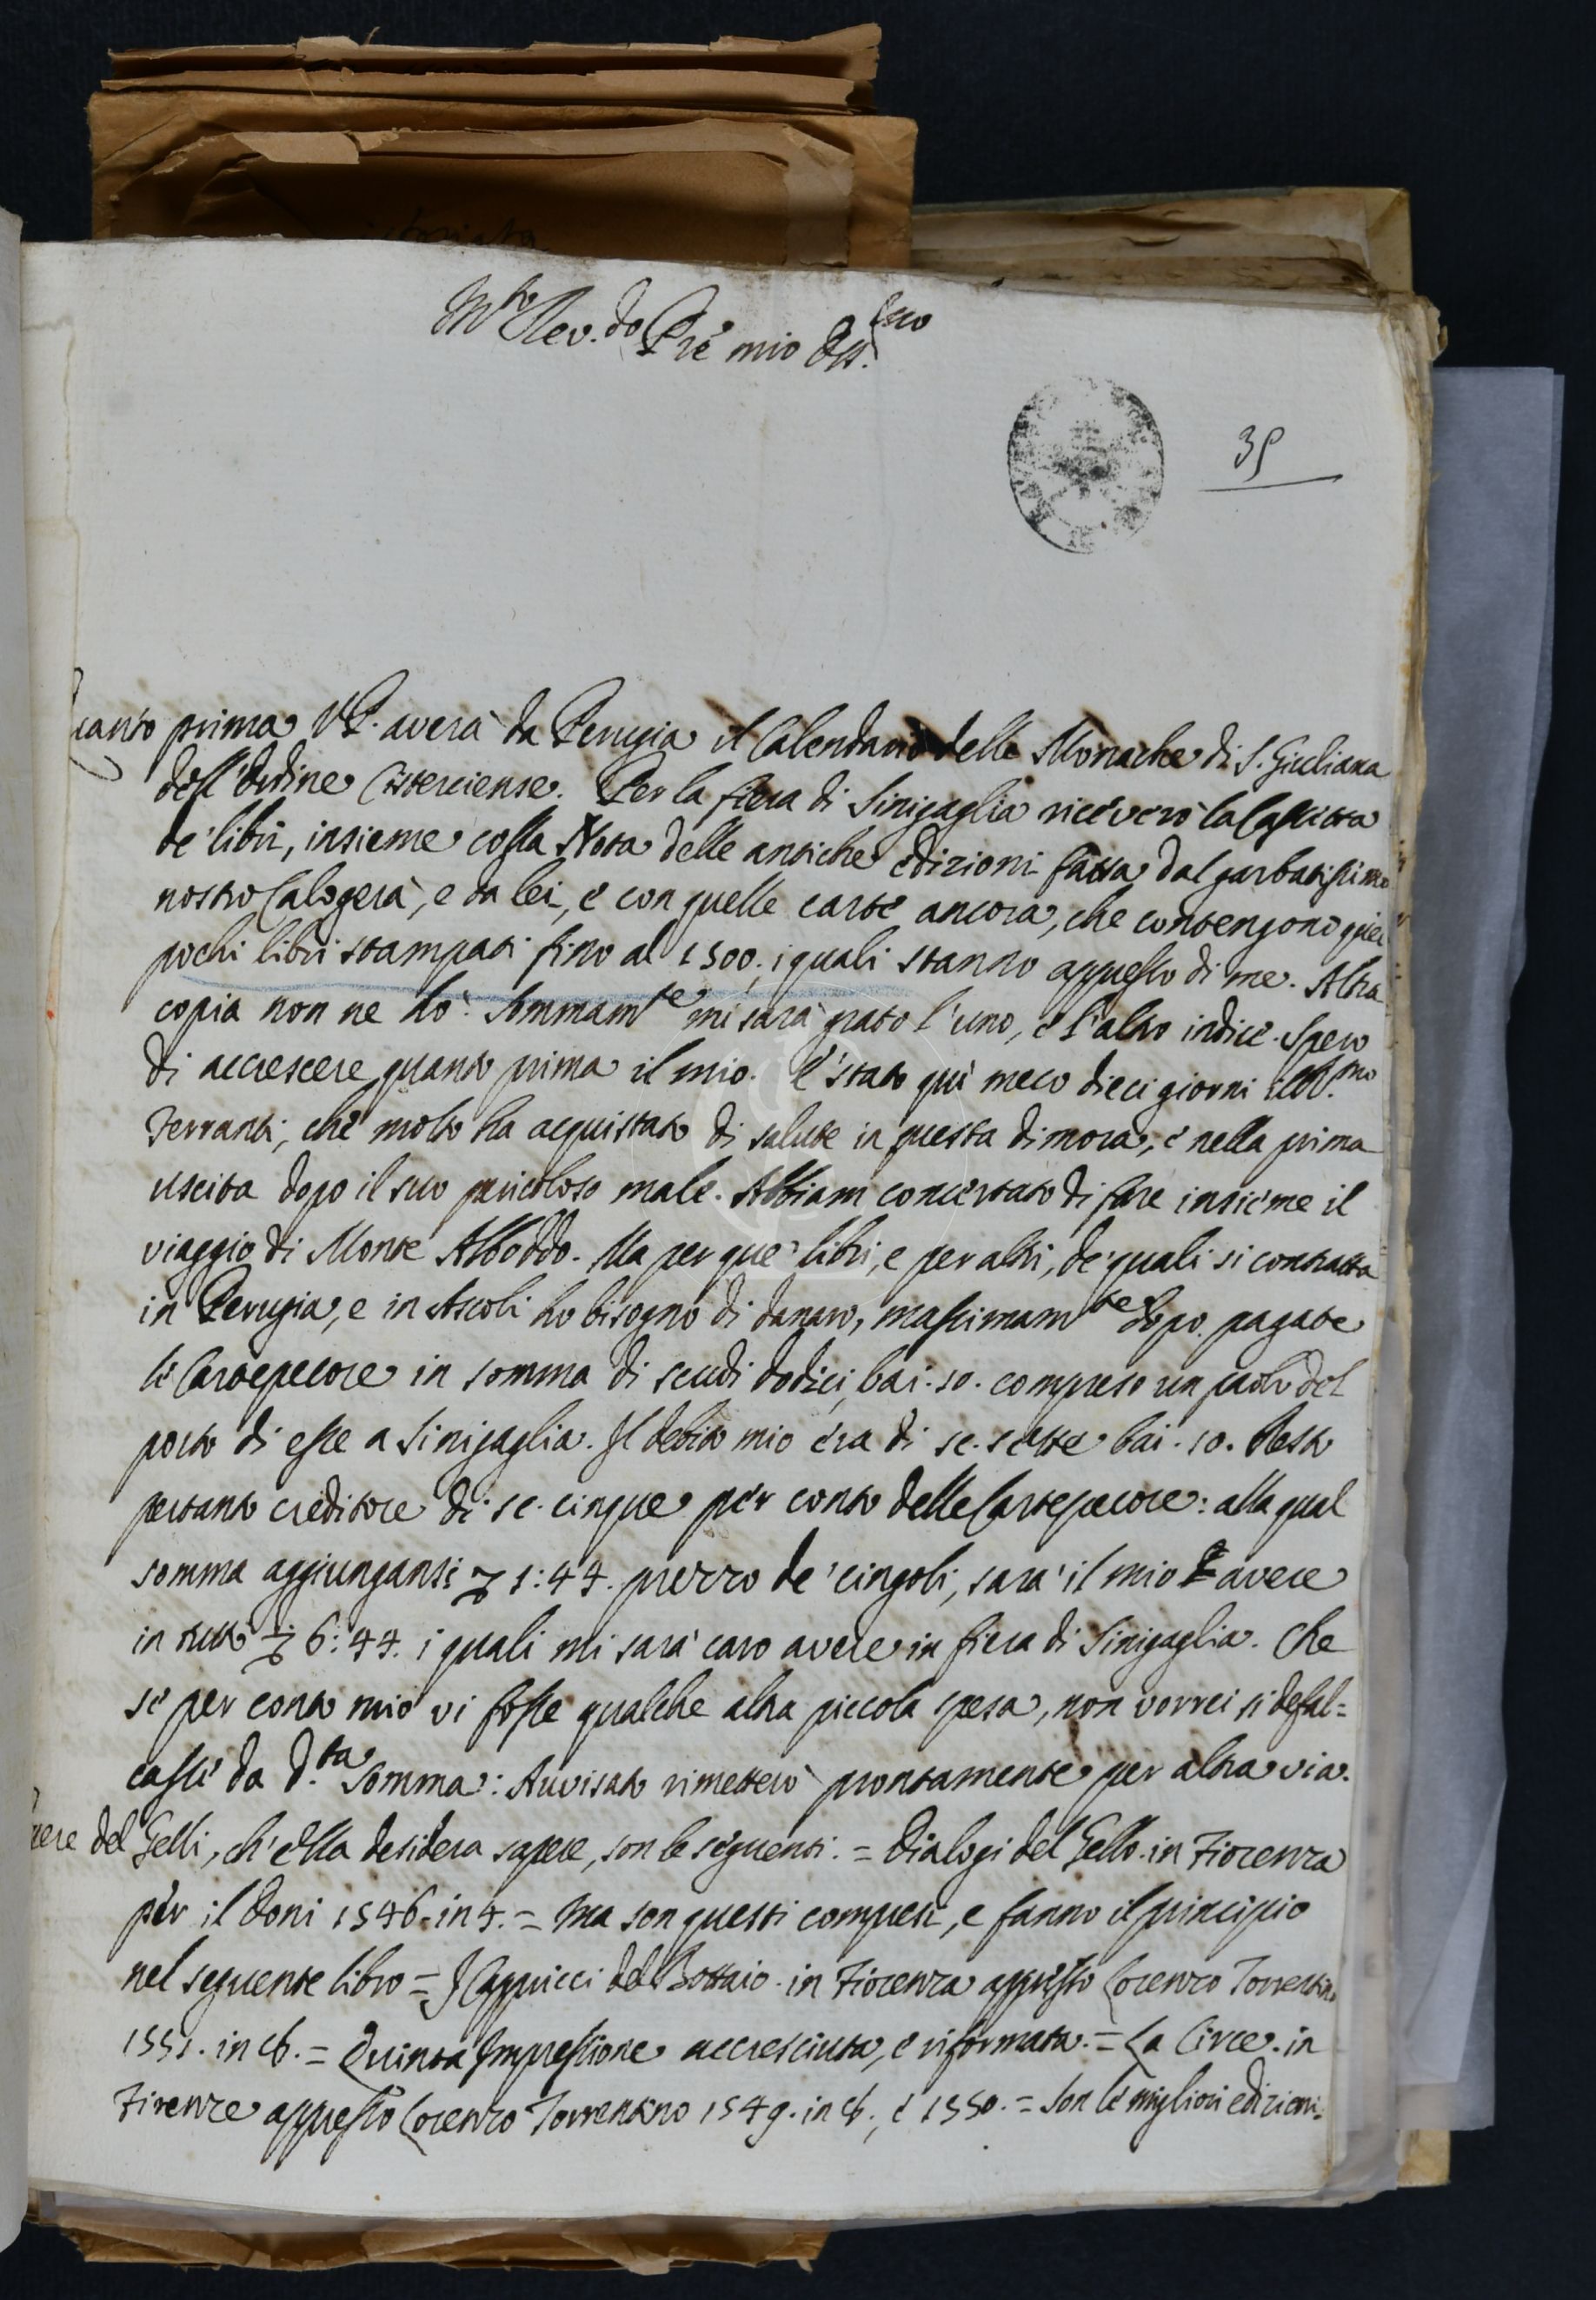 M.to Rev.do Pre mio Oss.mo
35
Quanto prima V.P. averà da Perugia il Calendario delle Monache di S. Giuliana
dell'Ordine Cisterciense. Per la fiera di Sinigaglia riceverò la Cassetta
de' libri, insieme colla Nota delle antiche edizioni fatta dal garbatissimo
nostro Calogerà, e da lei, e con quelle carte ancora, che contengono quei
pochi libri stampati fino al 1500. i quali stanno appresso di me. Altra
copia non ne hò. Sommam.te mi sarà grato l'uno, e l'altro indice. Spero
di accrescere quanto prima il mio. E' stato quì meco dieci giorni il
Ferranti, che molto ha acquistato di salute in questa dimora, e nella prima
uscita dopo il suo pericoloso male. Abbiam concertato di fare insieme il
viaggio di Monte Alboddo. Ma per que' libri, e per altri, de' quali si contratta
in Perugia, e in Ascoli ho bisogno di danaro, massimam.te dopo pagate
le Cartepecore in somma di scudi dodici, bai. 10. compreso un paolo del
porto di esse a Sinigaglia. Il debito mio era di sc. sette bai. 10. Resto
pertanto creditore di sc. cinque per conto delle Cartepecore: alla qual
somma aggiungansi 1:44. prezzo de' cingoli, sarà il mio avere
in tutto 6:44. i quali mi sarà caro avere in fiera di Sinigaglia. Che
se per conto mio vi fosse qualche altra piccola spesa, non vorrei si defal=
casse da d.ta somma: Avvisato rimetterò prontamente per altra via.
del Gelli, ch'Ella desidera sapere, son le seguenti. = Dialogi del Gello. in Fiorenza
per il Doni 1546. in 4. = ma son questi compresi, e fanno il principio
nel seguente libro = I Cappricci del Bottaio. in Fiorenza appresso Lorenzo Torrentino
1551. in 8. = Quinta Impressione accresciuta, e riformata. = La Circe. in
Firenze appresso Lorenzo Torrentino 1549. in 8., e 1550. = Son le migliori edizioni.